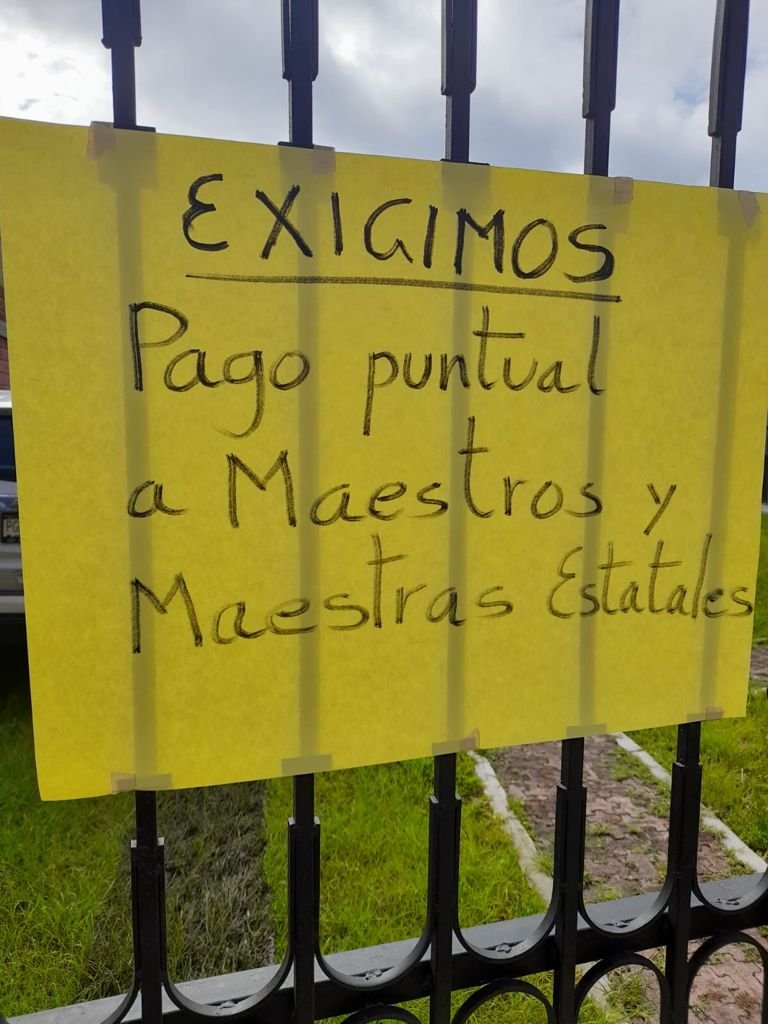 EXIGIMOS
Pago puntual
a Maestros y
Maestras Estatales